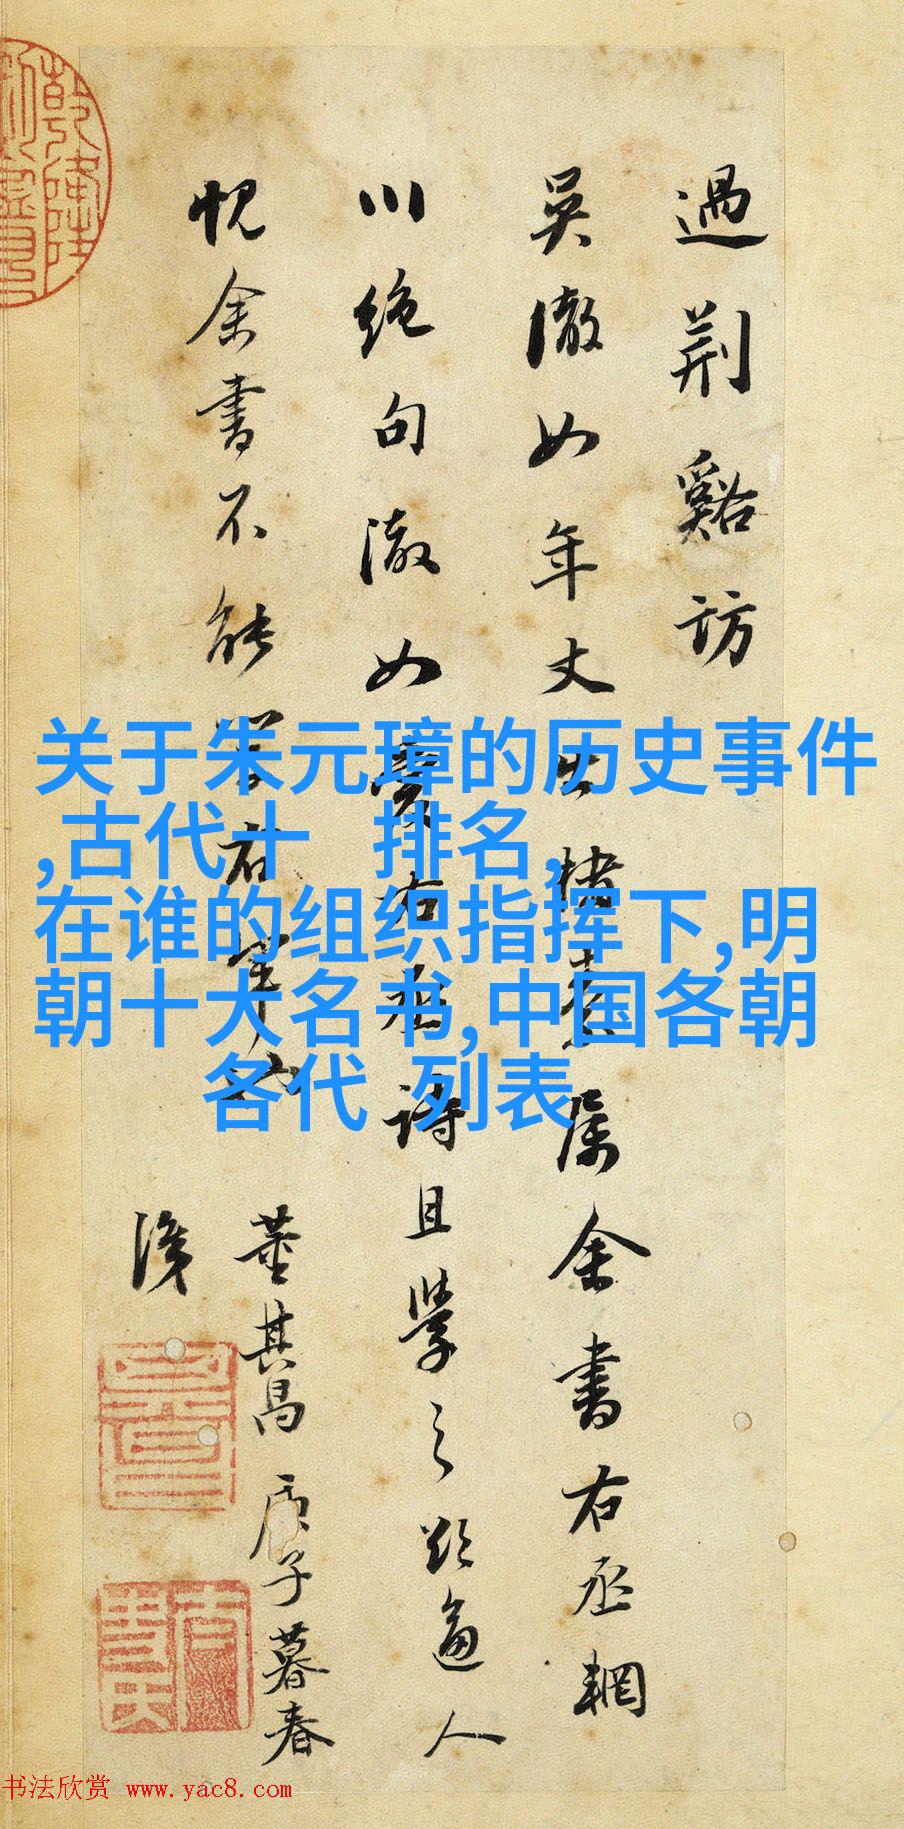 過荆谿訪
吴澈如年丈出楮素属余書右丞輞
川絶句澈如愛右丞詩且學之逼人
愧余書不能右軍也
董其昌庚子暮春
关于朱元璋的历史事件
,古代十 排名,
在谁的组织指挥下,明
朝十大名书,中国各朝
各代 列表
书法欣赏 www.yac8.com